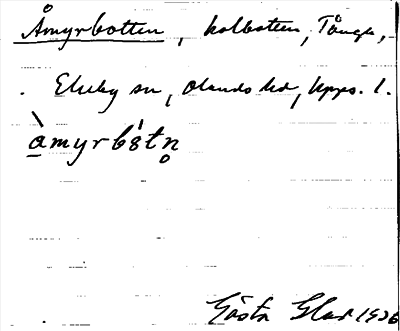 Åmyrbotten, kolbotten, Tånga,
Ekeby sn, Olands hd, Upps. l.
àmyrbòtn̥
Gösta Glad 1926